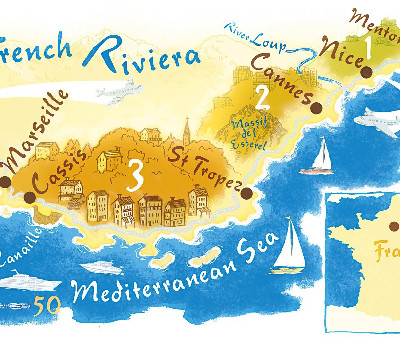 French Riviera
River Loup
Menton
1
Nice
Cannes
2
Massif
de l'
Esterel
Marseille
Cassis
3
St Tropez
Canaille
Mediterranean Sea
50
Fra